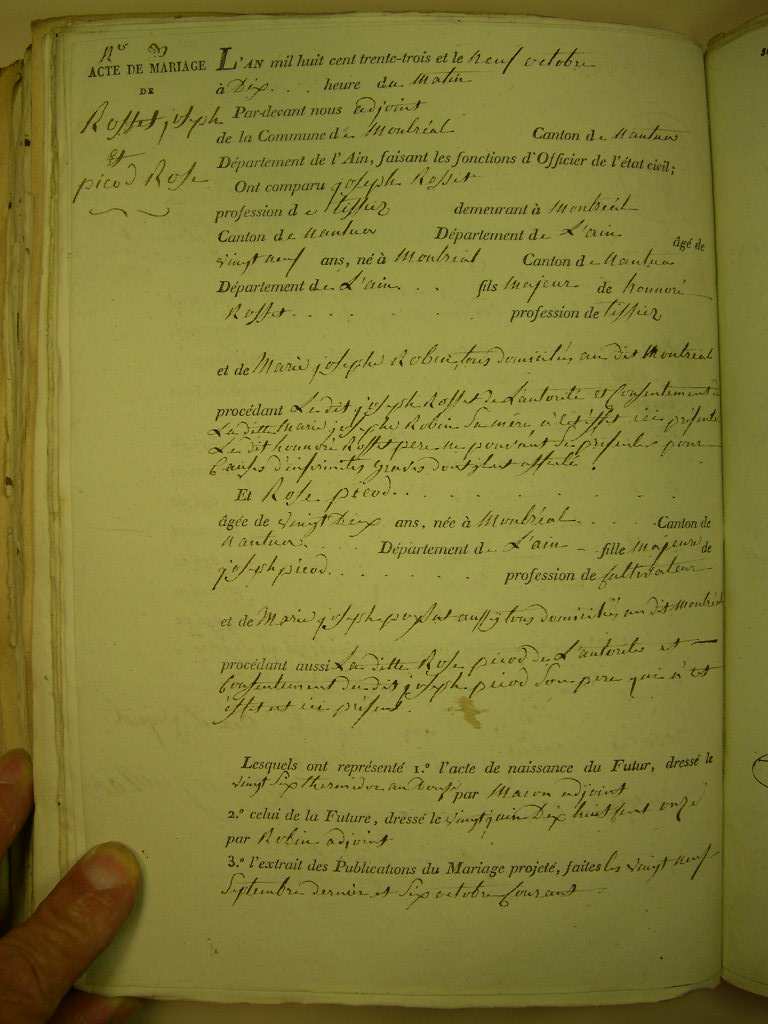 ACTE DE MARIAGE
DE
Rosset joseph
Et
picod Rose
L'AN mil huit cent trente-trois et le neuf octobre
à Dix . . heure du Matin
Par-devant nous adjoint
de la Commune de Montréal Canton de Nantua
Département de l'Ain, faisant les fonctions d'Officier de l'état civil;
Ont comparu joseph Rosset
profession de tissier demeurant à Montréal
Canton de Nantua Département de L'ain âgé de
vingt neuf ans, né à Montréal Canton de Nantua
Département de L'ain . . fils Majeur de honnoré
Rosset . . . . . . profession de tissier
et de Marie josephe Robin, tous domiciliés au dit Montréal
procédant Le dit joseph Rosset de L'autorité et Consentement de
La ditte Marie josephe Robin Sa mère à cet éffet ici présente
Le dit honnoré Rosset pere ne pouvant Se présenter pour
Causes d'infirmités Graves dont il est affecté .
Et Rose picod . . . . . . . .
âgée de vingt Deux ans, née à Montréal . . . Canton de
Nantua . . . Département de L'ain - fille Majeure de
joseph picod . . . . . . profession de Cultivateur
et de Marie joseph aussi tous domiciliés au dit Montréal
procédant aussi La ditte Rose picod de L'autorité et
Consentement du dit joseph picod Son pere qui à cet
éffet est ici présent.
Lesquels ont représenté 1.° l'acte de naissance du Futur, dressé le
vingt Six thermidor an Douze par Macon adjoint
2.° celui de la Future, dressé le vingt juin Dix huit cent onze
par Robin adjoint
3.° l'extrait des Publications du Mariage projeté, faites les vingt neuf
Septembre dernier et Six octobre Courant